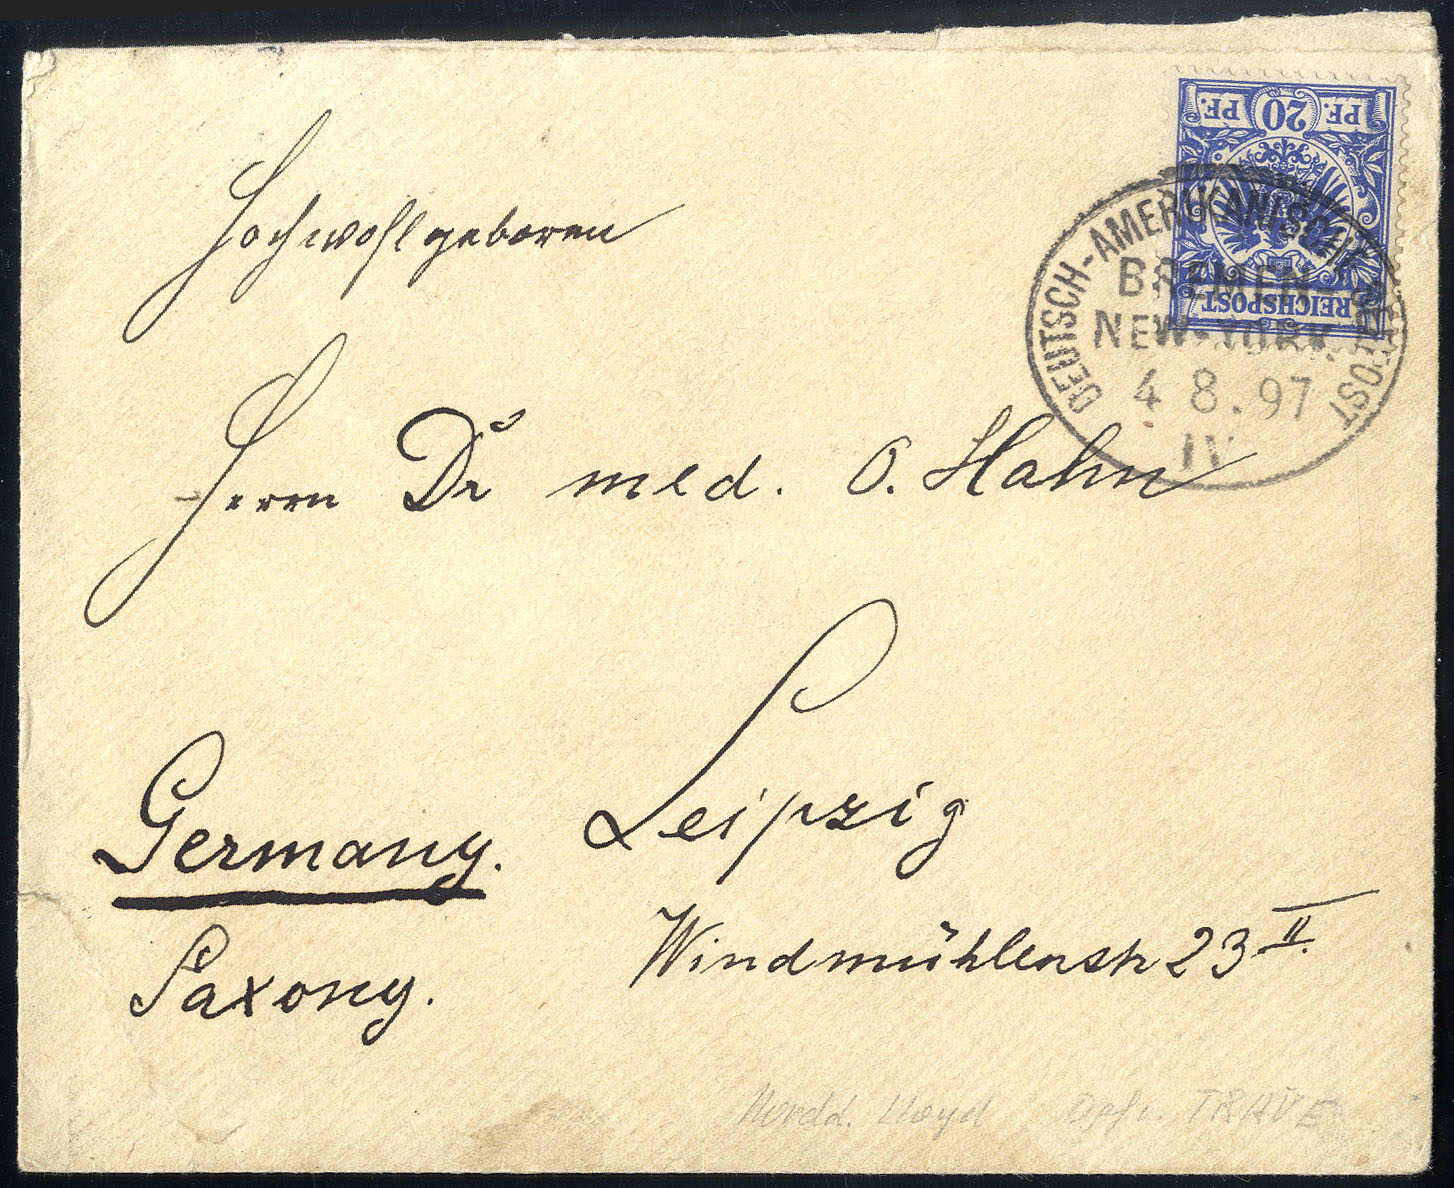 PF. 20 PF.
REICHSPOST
DEUTSCH-AMERIKANISCHE SEEPOST
BREMEN-
NEW-YORK
4 8.97
IV
Hochwohlgeboren
Herrn Dr med. O. Hahn
Leipzig
Germany.
Windmühlenstr 23 II.
Saxony.
Nordd. Lloyd Dpfr. TRAVE